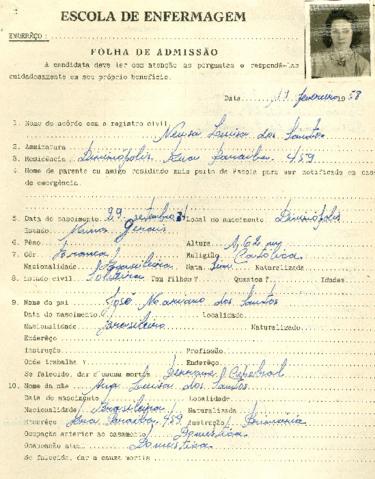 ESCOLA DE ENFERMAGEM
ENDERÊÇO:
FOLHA DE ADMISSÃO
A candidata deve ler com atenção as perguntas e respondê-las
cuidadosamente em seu próprio benefício.
Data 11 fevereiro 1958
1. Nome de acôrdo com o registro civil Neusa Luisa dos Santos
2. Assinatura
3. Residência Divinópolis, Rua Paraíba 459
4. Nome de parente ou amigo residindo mais perto da Escola para ser notificado em caso
de emergência.
5. Data do nascimento 29 setembro Local no nascimento Divinópolis
Estado Minas Gerais
6. Pêso Altura 1,62 m
7. Côr branca Religião Católica
Nacionalidade Brasileira Nata sim Naturalizada
8. Estado civil Solteira Tem filhos? Quantos? Idades
9. Nome do pai José Mariano dos Santos
Data do nascimento Localidade
Nacionalidade brasileiro Naturalizado
Enderêço
Instrução Profissão
Onde trabalha? Enderêço
Se falecido, dar a causa mortis Derrame Cerebral
10. Nome da mãe Ana Luisa dos Santos
Data do nascimento Localidade
Nacionalidade Brasileira Naturalizada
Enderêço Rua Paraíba 459 Instrução Primária
Ocupação anterior ao casamento Doméstica
Ocupação atual Doméstica
Se falecida, dar a causa mortis